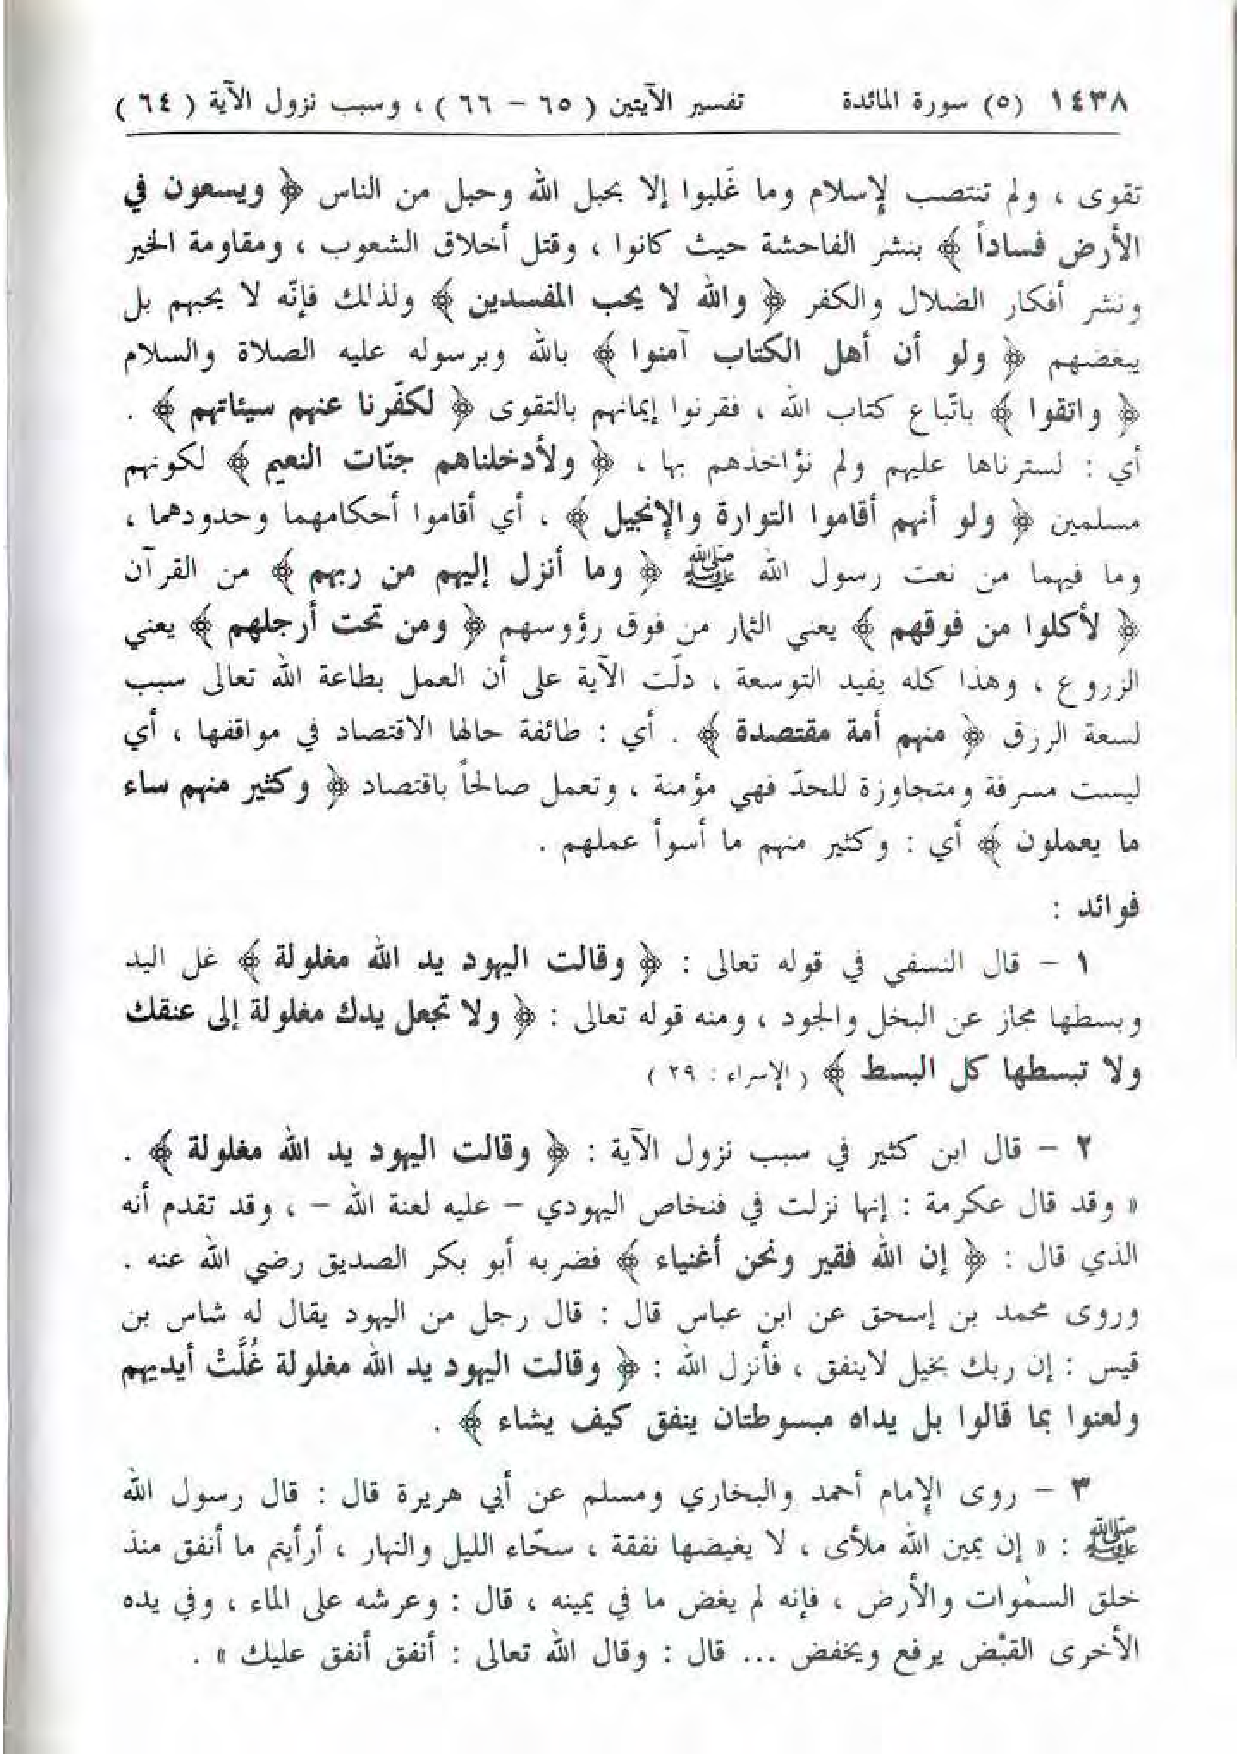 ١٤٣٨ (٥) سورة المائدة تفسير الآيتين ( ٦٥ – ٦٦ ) ، وسبب نزول الآية ( ٦٤ )
تقوى ، ولم تنتصب لإسلام وما غَلبوا إلا بحبل الله وحبل من الناس ﴿ ويسعون في
الأرض فساداً ﴾ بنشر الفاحشة حيث كانوا ، وقتل أخلاق الشعوب ، ومقاومة الخير
ونشر أفكار الضلال والكفر ﴿ والله لا يحب المفسدين ﴾ ولذلك فإنّه لا يحبهم بل
يبغضهم ﴿ ولو أن أهل الكتاب آمنوا ﴾ بالله وبرسوله عليه الصلاة والسلام
﴿ واتقوا ﴾ باتّباع كتاب الله ، فقرنوا إيمانهم بالتقوى ﴿ لكفّرنا عنهم سيئاتهم ﴾ .
أي : لسترناها عليهم ولم نؤاخذهم بها ، ﴿ ولأدخلناهم جنّات النعيم ﴾ لكونهم
مسلمين ﴿ ولو أنهم أقاموا التوارة والإنجيل ﴾ ، أي أقاموا أحكامهما وحدودهما ،
وما فيهما من نعت رسول الله ﷺ ﴿ وما أنزل إليهم من ربهم ﴾ من القرآن
﴿ لأكلوا من فوقهم ﴾ يعني الثمار من فوق رؤوسهم ﴿ ومن تحت أرجلهم ﴾ يعني
الزروع ، وهذا كله يفيد التوسعة ، دلّت الآية على أن العمل بطاعة الله تعالى سبب
لسعة الرزق ﴿ منهم أمة مقتصدة ﴾ . أي : طائفة حالها الاقتصاد في مواقفها ، أي
ليست مسرفة ومتجاوزة للحدّ فهي مؤمنة ، وتعمل صالحاً باقتصاد ﴿ وكثير منهم ساء
ما يعملون ﴾ أي : وكثير منهم ما أسوأ عملهم .
فوائد :
١ – قال النسفي في قوله تعالى : ﴿ وقالت اليهود يد الله مغلولة ﴾ غل اليد
وبسطها مجاز عن البخل والجود ، ومنه قوله تعالى : ﴿ ولا تجعل يدك مغلولة إلى عنقك
ولا تبسطها كل البسط ﴾ ( الإسراء : ٢٩ )
٢ – قال ابن كثير في سبب نزول الآية : ﴿ وقالت اليهود يد الله مغلولة ﴾ .
« وقد قال عكرمة : إنها نزلت في فنخاص اليهودي – عليه لعنة الله – ، وقد تقدم أنه
الذي قال : ﴿ إن الله فقير ونحن أغنياء ﴾ فضربه أبو بكر الصديق رضي الله عنه .
وروى محمد بن إسحق عن ابن عباس قال : قال رجل من اليهود يقال له شاس بن
قيس : إن ربك بخيل لاينفق ، فأنزل الله : ﴿ وقالت اليهود يد الله مغلولة غُلَّتْ أيديهم
ولعنوا بما قالوا بل يداه مبسوطتان ينفق كيف يشاء ﴾ .
٣ – روى الإمام أحمد والبخاري ومسلم عن أبي هريرة قال : قال رسول الله
ﷺ : « إن يمين الله ملأى ، لا يغيضها نفقة ، سحّاء الليل والنهار ، أرأيتم ما أنفق منذ
خلق السمٰوات والأرض ، فإنه لم يغض ما في يمينه ، قال : وعرشه على الماء ، وفي يده
الأخرى القبْض يرفع ويخفض ... قال : وقال الله تعالى : أنفق أنفق عليك » .